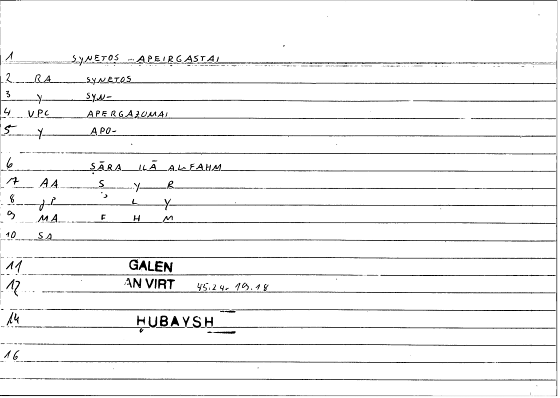 1 SYNETOS - APEIRGASTAI
2 RA SYNETOS
3 y SYN-
4 VPC APERGAZOMAI
5 y APO-
6 SĀRA ILĀ AL-FAHM
7 AA S Y R
8 JP ' L Y
9 MA F H M
10 SA
11 GALEN
12 AN VIRT 45.24- 19.18
14 HUBAYSH
16